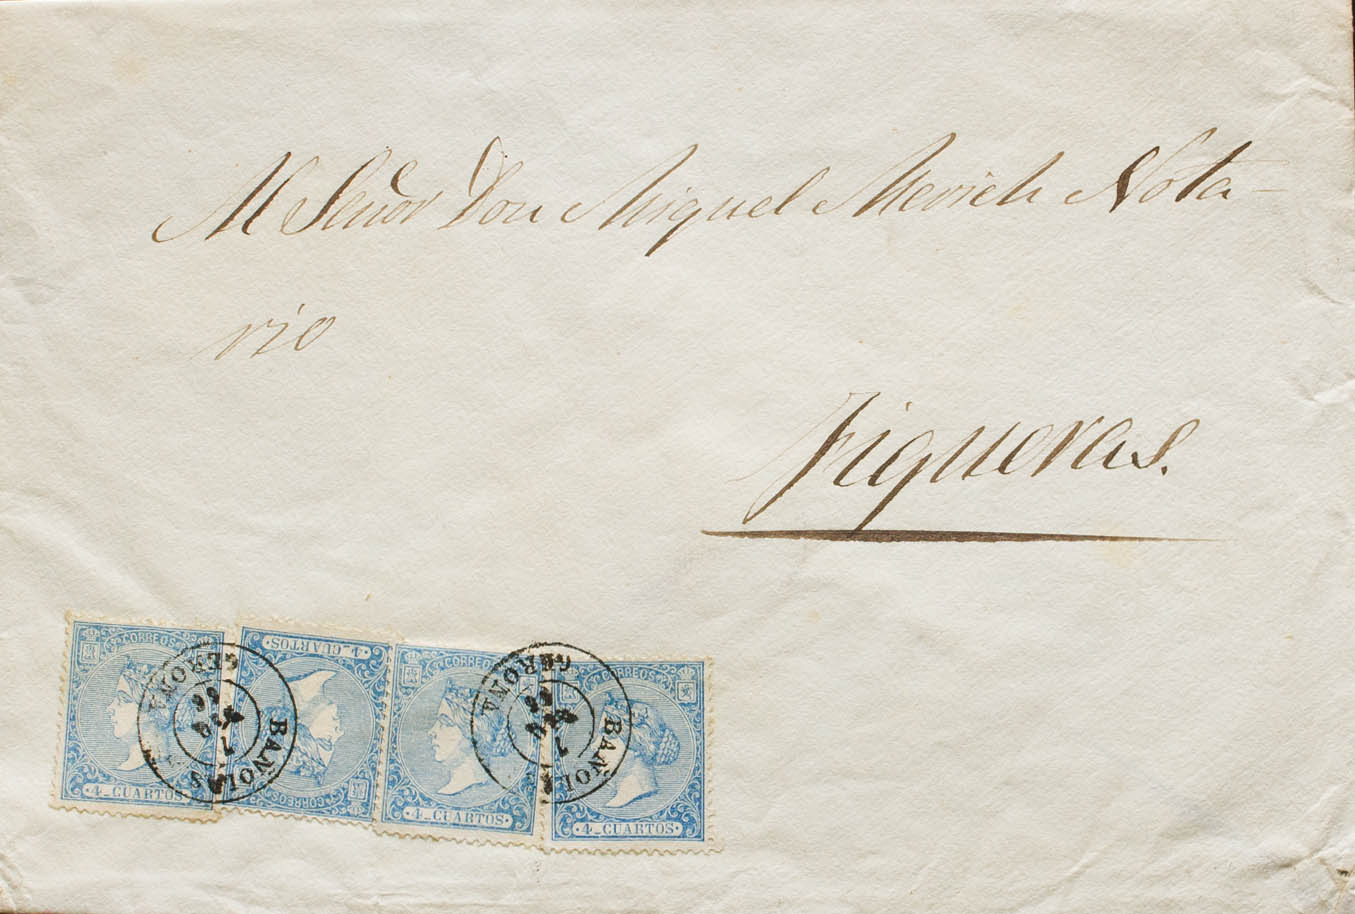 M Señor Don Miquel Merich Nota-
rio
Figueras.
CORREOS
4_CUARTOS
4_CUARTOS
CORREOS
CORREOS
4_CUARTOS
CORREOS
4_CUARTOS
BAÑOLAS
GERONA
BAÑOLAS
GERONA